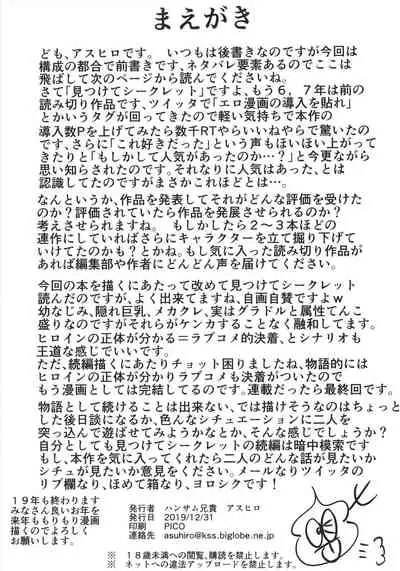 まえがき
ども、アスヒロです。 いつもは後書きなのですが今回は
構成の都合で前書きです、ネタバレ要素あるのでここは
飛ばして次のページから読んでくださいね。
さて「見つけてシークレット」ですよ、もう6，7年は前の
読み切り作品です、ツイッタで「エロ漫画の導入を貼れ」
とかいうタグが回ってきたので軽い気持ちで本作の
導入数Pを上げてみたら数千RTやらいいねやらで驚いたの
です、さらに「これ好きだった」という声もほいほい上がって
きたりと「もしかして人気があったのか…？」と今更ながら
思い知らされたのです。それなりに人気はあった、とは
認識してたのですがまさかこれほどとは…。
なんというか、作品を発表してそれがどんな評価を受けた
のか？評価されていたら作品を発展させられるのか？
考えさせられますね。 もしかしたら2～3本ほどの
連作にしていればさらにキャラクターを立て掘り下げて
いけてたのかも？とかね。もし気に入った読み切り作品が
あれば編集部や作者にどんどん声を届けてください。
今回の本を描くにあたって改めて見つけてシークレット
読んだのですが、よく出来てますね、自画自賛ですよｗ
幼なじみ、隠れ巨乳、メカクレ、実はグラドルと属性てんこ
盛りなのですがそれらがケンカすることなく融和してます。
ヒロインの正体が分かる＝ラブコメ的決着、とシナリオも
王道な感じでいいです。
ただ、続編描くにあたりチョット困りましたね、物語的には
ヒロインの正体が分かりラブコメも決着がついたので
もう漫画としては完結してるのです。連載だったら最終回です。
物語として続けることは出来ない、では描けそうなのはちょっと
した後日談になるか、色んなシチュエーションに二人を
突っ込んで遊ばせてみようかなとか、そんな感じでしょうか？
自分としても見つけてシークレットの続編は暗中模索です
もし、本作を気に入ってくれたら二人のどんな話が見たいか
シチュが見たいか意見をください。メールなりツイッタの
リプ欄なり、ほめて箱なり、ヨロシクです！
19年も終わります
みなさん良いお年を
来年ももりもり漫画
描くのでよろしく
お願いします。
発行者 ハンサム兄貴 アスヒロ
発行日 2019/12/31
印刷 PICO
連絡先 asuhiro@kss.biglobe.ne.jp
※ 18歳未満への閲覧、購読を禁止します。
※ ネットへの違法アップロードを禁止します。